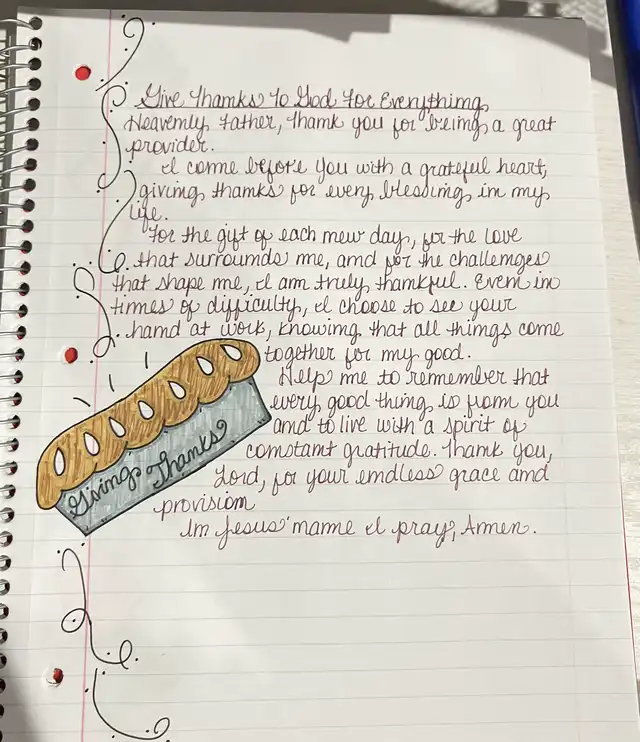 Give Thanks To God For Everything
Heavenly Father, thank you for being a great
provider.
I come before you with a grateful heart,
giving thanks for every blessing in my
life.
For the gift of each new day, for the love
that surrounds me, and for the challenges
that shape me, I am truly thankful. Even in
times of difficulty, I choose to see your
hand at work, knowing that all things come
together for my good.
Help me to remember that
every good thing is from you
and to live with a spirit of
constant gratitude. Thank you,
Lord, for your endless grace and
provision
In Jesus' name I pray, Amen.
Giving Thanks